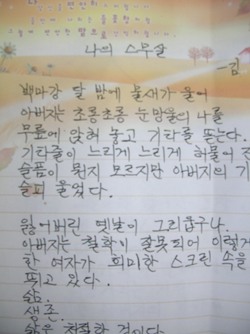 나의 스무살
-김
백마강 달 밤에 물새가 울어
아버지는 초롱초롱 눈망울의 나를
무릎에 앉혀 놓고 기타를 뜯는다.
기타줄이 느리게 느리게 허물어 진
슬픔이 뭔지 모르지만 아버지의 기
슬피 울었다.
잃어버린 옛날이 그리웁구나.
아버지는 철학이 잘못되어 이렇게
한 여자가 희미한 스크린 속을
찍고 있다.
삶.
생존.
삶은 처절한 것이다.